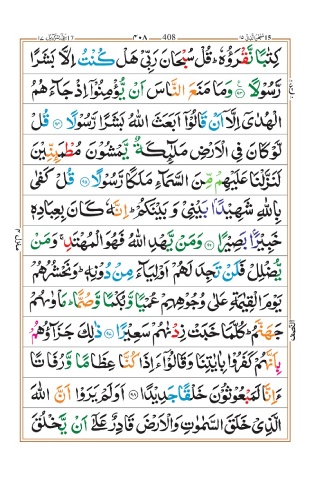 كِتٰبًا نَّقْرَؤُهٗ ؕ قُلْ سُبْحَانَ رَبِّىْ هَلْ كُنْتُ اِلَّا بَشَرًا
رَّسُوْلًا ﴿۹۳﴾ وَمَا مَنَعَ النَّاسَ اَنْ يُّؤْمِنُوْۤا اِذْ جَآءَهُمُ
الْهُدٰٓى اِلَّاۤ اَنْ قَالُوْۤا اَبَعَثَ اللّٰهُ بَشَرًا رَّسُوْلًا ﴿۹۴﴾ قُلْ
لَّوْ كَانَ فِى الْاَرْضِ مَلٰٓئِكَةٌ يَّمْشُوْنَ مُطْمَئِنِّيْنَ
لَنَزَّلْنَا عَلَيْهِمْ مِّنَ السَّمَآءِ مَلَكًا رَّسُوْلًا ﴿۹۵﴾ قُلْ كَفٰى
بِاللّٰهِ شَهِيْدًۢا بَيْنِىْ وَبَيْنَكُمْ ؕ اِنَّهٗ كَانَ بِعِبَادِهٖ
خَبِيْرًۢا بَصِيْرًا ﴿۹۶﴾ وَمَنْ يَّهْدِ اللّٰهُ فَهُوَ الْمُهْتَدِ ۚ وَمَنْ
يُّضْلِلْ فَلَنْ تَجِدَ لَهُمْ اَوْلِيَآءَ مِنْ دُوْنِهٖ ؕ وَنَحْشُرُهُمْ
يَوْمَ الْقِيٰمَةِ عَلٰى وُجُوْهِهِمْ عُمْيًا وَّبُكْمًا وَّصُمًّا ؕ مَاْوٰىهُمْ
جَهَنَّمُ ؕ كُلَّمَا خَبَتْ زِدْنٰهُمْ سَعِيْرًا ﴿۹۷﴾ ذٰلِكَ جَزَآؤُهُمْ
بِاَنَّهُمْ كَفَرُوْا بِاٰيٰتِنَا وَقَالُوْۤا ءَاِذَا كُنَّا عِظَامًا وَّرُفَاتًا
ءَاِنَّا لَمَبْعُوْثُوْنَ خَلْقًا جَدِيْدًا ﴿۹۸﴾ اَوَلَمْ يَرَوْا اَنَّ اللّٰهَ
الَّذِىْ خَلَقَ السَّمٰوٰتِ وَالْاَرْضَ قَادِرٌ عَلٰٓى اَنْ يَّخْلُقَ